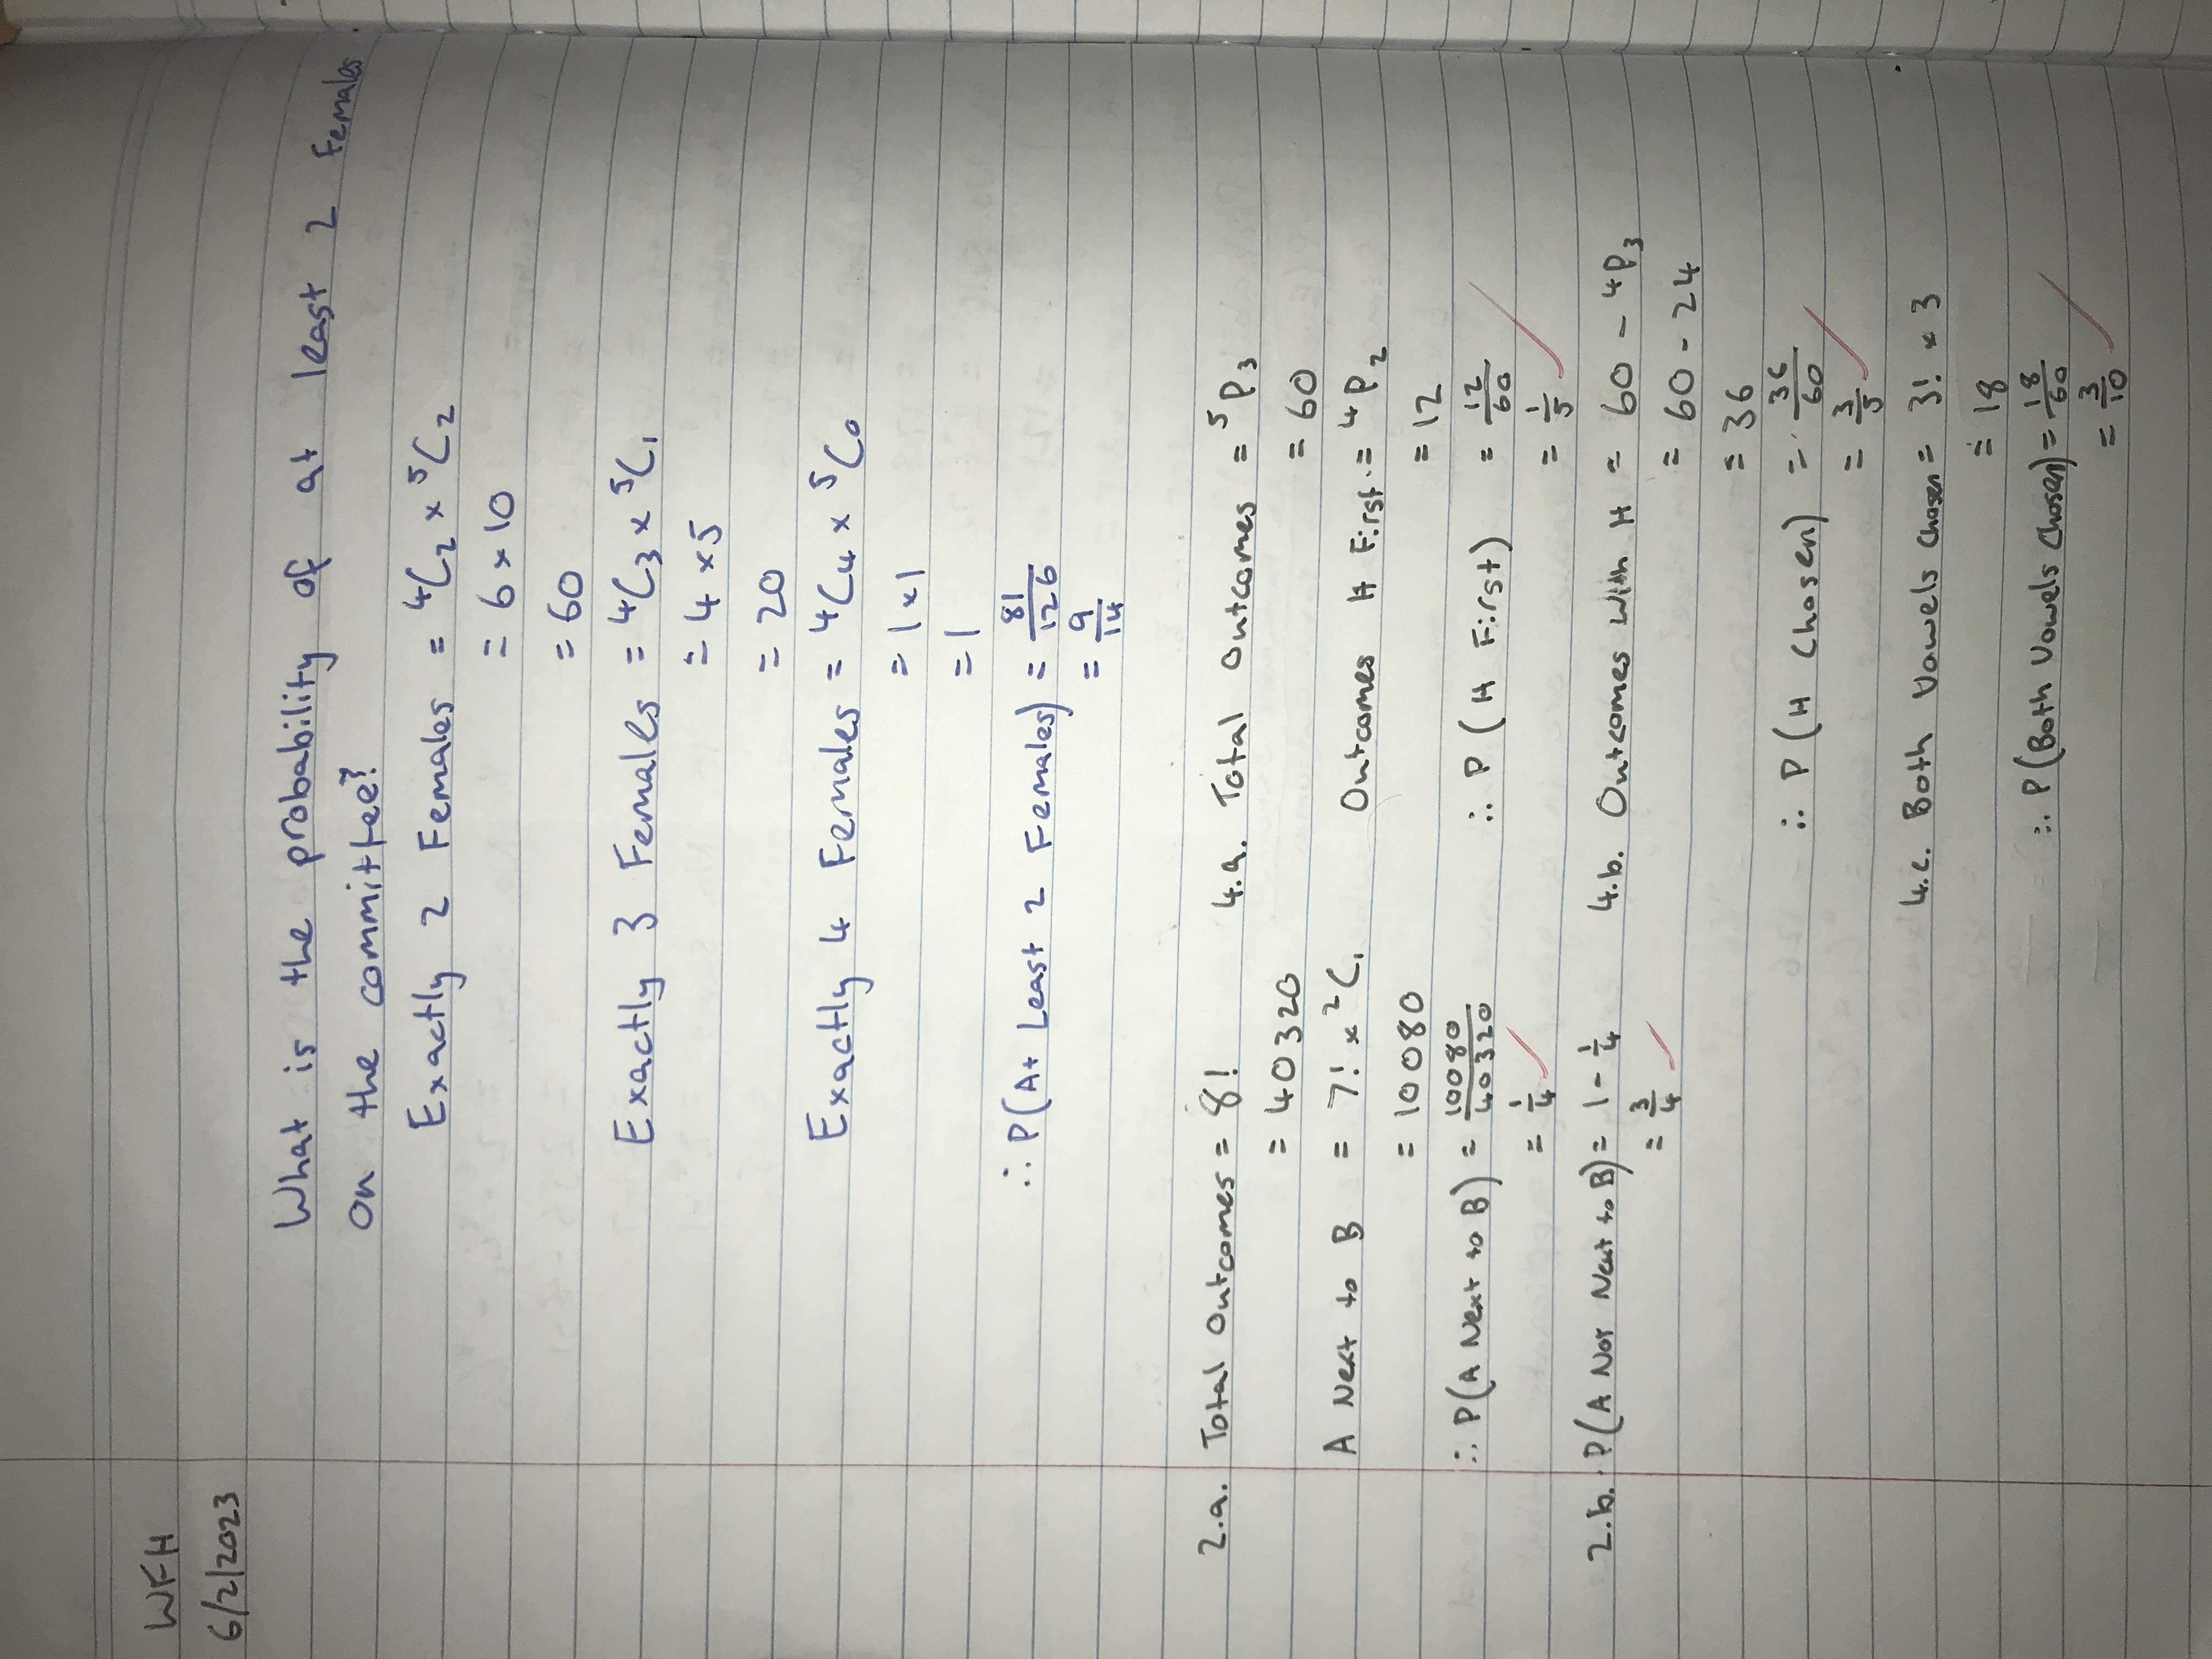 WFH
6/2/2023
What is the probability of at least 2 Females
on the committee?
Exactly 2 Females = ⁴C₂ × ⁵C₂
= 6 × 10
= 60
Exactly 3 Females = ⁴C₃ × ⁵C₁
= 4 × 5
= 20
Exactly 4 Females = ⁴C₄ × ⁵C₀
= 1 × 1
= 1
∴ P(At Least 2 Females) = 81/126
= 9/14
2.a. Total Outcomes = 8!
= 40320
A Next to B = 7! × ²C₁
= 10080
∴ P(A Next to B) = 10080/40320
= 1/4 ✓
2.b. P(A Not Next to B) = 1 - 1/4
= 3/4 ✓
4.a. Total Outcomes = ⁵P₃
= 60
Outcomes H First = ⁴P₂
= 12
∴ P(H First) = 12/60
= 1/5 ✓
4.b. Outcomes With H = 60 - ⁴P₃
= 60 - 24
= 36
∴ P(H Chosen) = 36/60
= 3/5 ✓
4.c. Both Vowels Chosen = 3! × 3
= 18
∴ P(Both Vowels Chosen) = 18/60
= 3/10 ✓